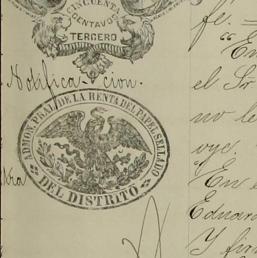 CINCUENTA
CENTAVOS
TERCERO
Notificacion.
ADMON. PRAL. DE LA RENTA DEL PAPEL SELLADO
DEL DISTRITO
fé. —
"En
el Sr
no le
oye.
"En e
Eduar
Y fir